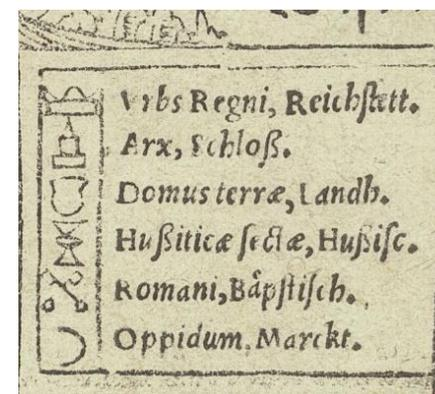 Vrbs Regni, Reichſtett.
Arx, Schloß.
Domus terræ, Landh.
Hußiticæ ſectæ, Hußiſc.
Romani, Båpſtiſch.
Oppidum. Marckt.